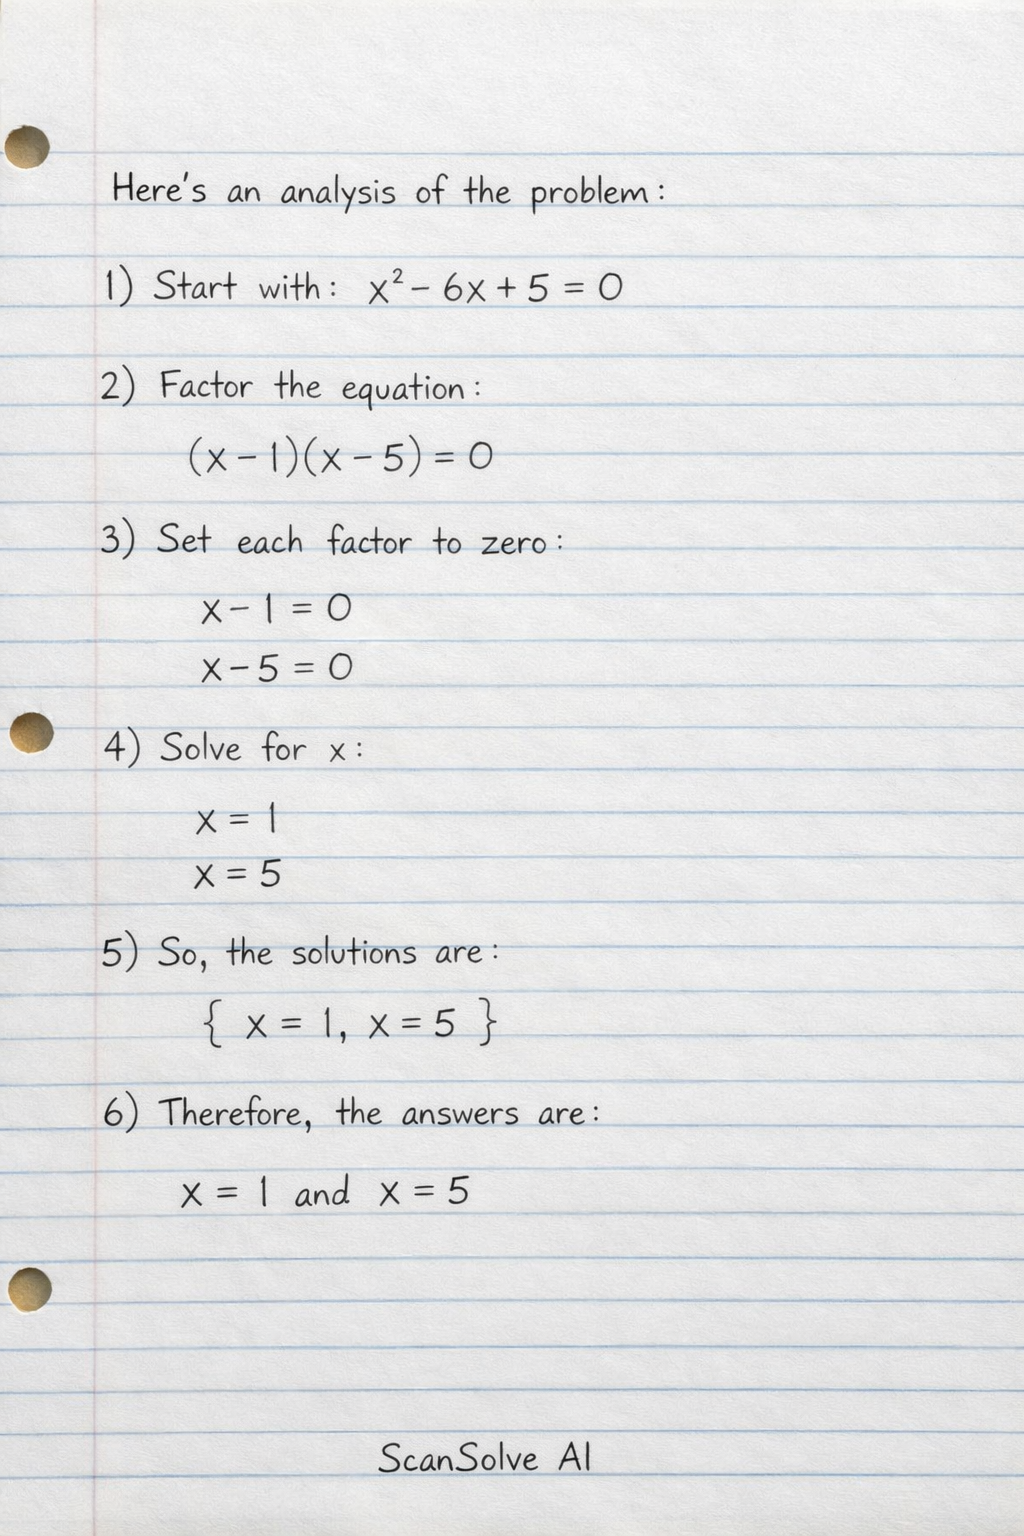 Here's an analysis of the problem:
1) Start with: x² - 6x + 5 = 0
2) Factor the equation:
(x - 1)(x - 5) = 0
3) Set each factor to zero:
x - 1 = 0
x - 5 = 0
4) Solve for x:
x = 1
x = 5
5) So, the solutions are:
{ x = 1, x = 5 }
6) Therefore, the answers are:
x = 1 and x = 5
ScanSolve AI